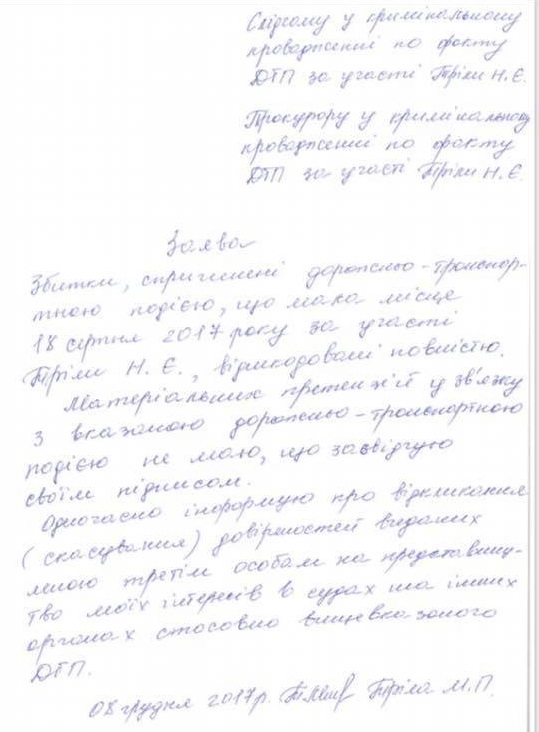 Слідчому у кримінальному
провадженні по факту
ДТП за участі Тріли Н.Є.
Прокурору у кримінальному
провадженні по факту
ДТП за участі Тріли Н.Є.
Заява
Збитки, спричинені дорожньо-транспор-
тною подією, що мала місце
18 серпня 2017 року за участі
Тріли Н.Є., відшкодовані повністю.
Матеріальних претензій у зв'язку
з вказаною дорожньо-транспортною
подією не маю, що засвідчую
своїм підписом.
Одночасно інформую про відкликання
(скасування) довіреностей виданих
мною третім особам на представниц-
тво моїх інтересів в судах та інших
органах стосовно вищевказаного
ДТП.
08 грудня 2017р. Тріла М.П.